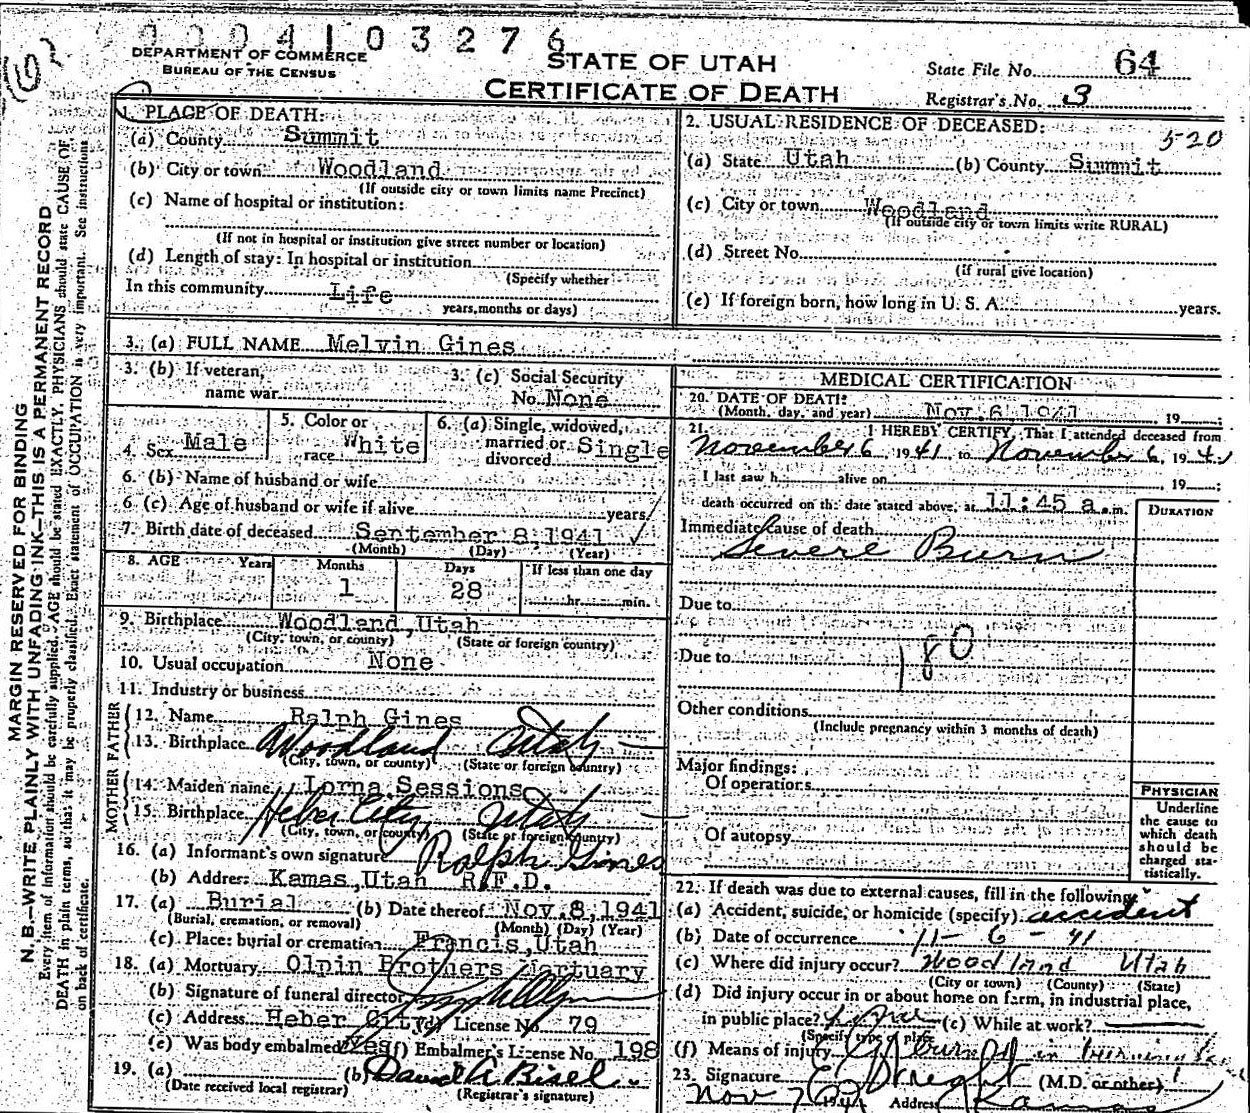 0004103276
DEPARTMENT OF COMMERCE
BUREAU OF THE CENSUS
STATE OF UTAH
CERTIFICATE OF DEATH
State File No. 64
Registrar's No. 3
MARGIN RESERVED FOR BINDING
N. B.—WRITE PLAINLY WITH UNFADING INK—THIS IS A PERMANENT RECORD
Every item of information should be carefully supplied. AGE should be stated EXACTLY. PHYSICIANS should state CAUSE OF
DEATH in plain terms, so that it may be properly classified. Exact statement of OCCUPATION is very important. See instructions
on back of certificate.
1. PLACE OF DEATH:
(a) County Summit
(b) City or town Woodland
(If outside city or town limits name Precinct)
(c) Name of hospital or institution:
(If not in hospital or institution give street number or location)
(d) Length of stay: In hospital or institution
(Specify whether
In this community Life
years, months or days)
2. USUAL RESIDENCE OF DECEASED:
520
(a) State Utah (b) County Summit
(c) City or town Woodland
(If outside city or town limits write RURAL)
(d) Street No.
(If rural give location)
(e) If foreign born, how long in U. S. A. years.
3. (a) FULL NAME Melvin Gines
3. (b) If veteran, name war
3. (c) Social Security No. None
4. Sex Male
5. Color or race White
6. (a) Single, widowed, married or divorced Single
6. (b) Name of husband or wife
6. (c) Age of husband or wife if alive years
7. Birth date of deceased September 8, 1941
(Month) (Day) (Year)
8. AGE Years Months Days If less than one day
1 28 hr. min.
9. Birthplace Woodland, Utah
(City, town, or county) (State or foreign country)
10. Usual occupation None
11. Industry or business
FATHER
12. Name Ralph Gines
13. Birthplace Woodland Utah
(City, town, or county) (State or foreign country)
MOTHER
14. Maiden name Lorna Sessions
15. Birthplace Heber City Utah
(City, town, or county) (State or foreign country)
16. (a) Informant's own signature Ralph Gines
(b) Address Kamas, Utah R.F.D.
17. (a) Burial (b) Date thereof Nov. 8, 1941
(Burial, cremation, or removal) (Month) (Day) (Year)
(c) Place: burial or cremation Francis, Utah
18. (a) Mortuary Olpin Brothers Mortuary
(b) Signature of funeral director
(c) Address Heber City (d) License No. 79
(e) Was body embalmed Yes (f) Embalmer's License No. 198
19. (a) (b) David A Bisel
(Date received local registrar) (Registrar's signature)
MEDICAL CERTIFICATION
20. DATE OF DEATH:
(Month, day, and year) Nov 6 1941 , 19
21. I HEREBY CERTIFY, That I attended deceased from
November 6, 1941 to November 6, 194
I last saw h alive on 19 ;
death occurred on the date stated above, at 11:45 a.m.
DURATION
Immediate cause of death
Severe Burn
Due to
180
Due to
Other conditions
(Include pregnancy within 3 months of death)
Major findings:
Of operations
Of autopsy
PHYSICIAN
Underline
the cause to
which death
should be
charged sta-
tistically.
22. If death was due to external causes, fill in the following:
(a) Accident, suicide, or homicide (specify) accident
(b) Date of occurrence 11-6-41
(c) Where did injury occur? Woodland Utah
(City or town) (County) (State)
(d) Did injury occur in or about home on farm, in industrial place,
in public place? home (e) While at work?
(Specify type of place)
(f) Means of injury burned in burning
23. Signature (M.D. or other)
Nov 7 Address Kamas